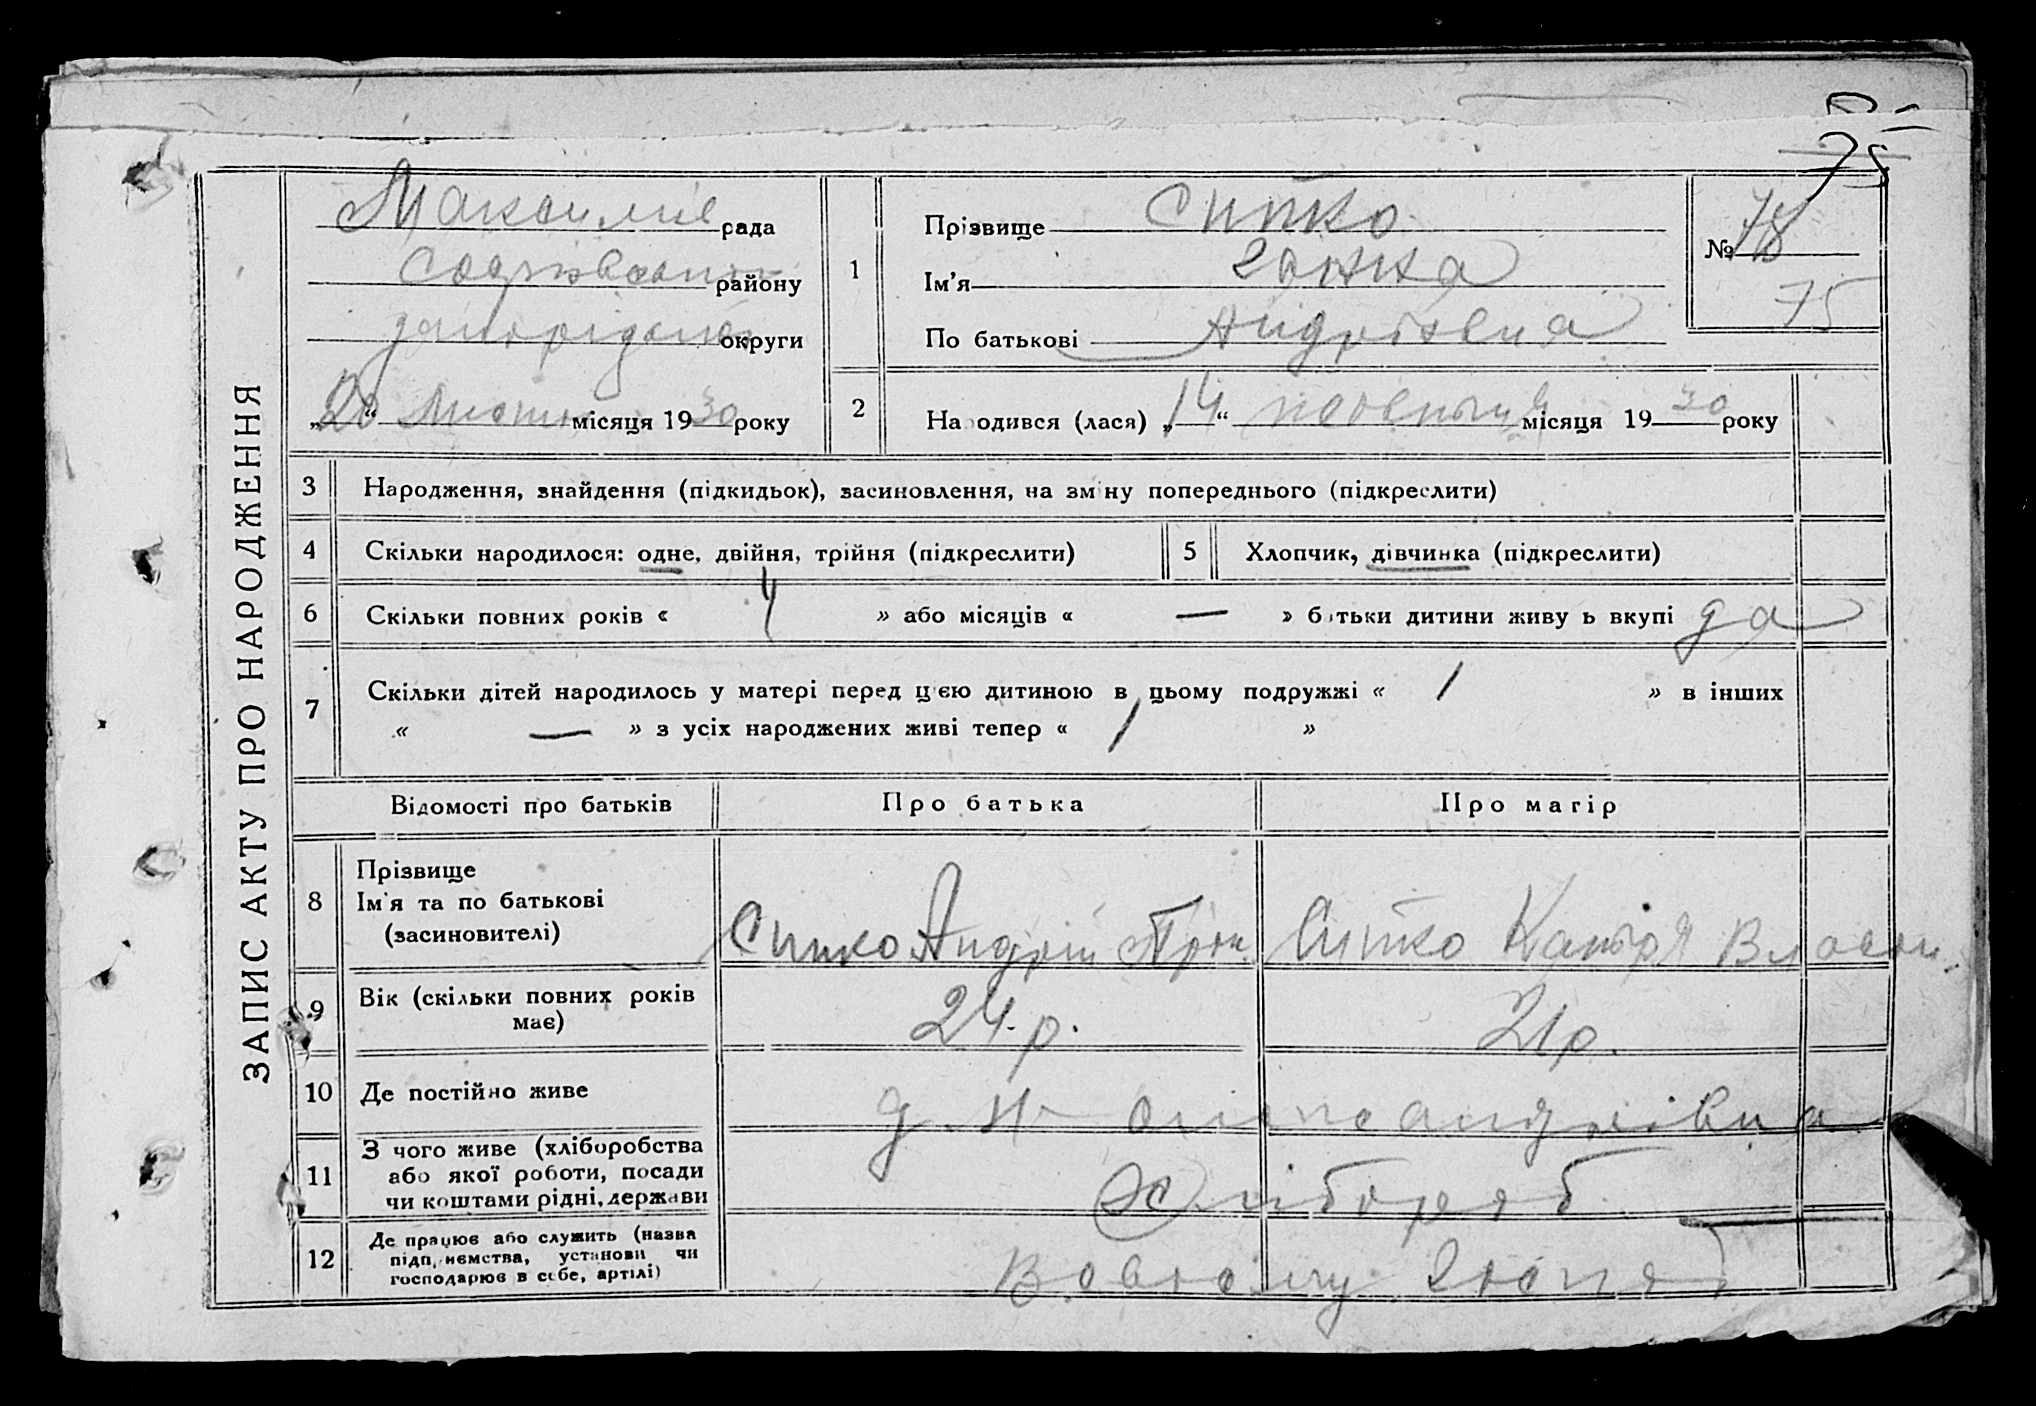 75
ЗАПИС АКТУ ПРО НАРОДЖЕННЯ
рада
району
округи
„20“ місяця 1930 року
1
Прізвище Сипко
Ім'я Ганна
По батькові Андріївна
№ 78
75
2
Народився (лася) „14“ місяця 1930 року
3 Народження, знайдення (підкидьок), засиновлення, на зміну попереднього (підкреслити)
4 Скільки народилося: одне, двійня, трійня (підкреслити)
5 Хлопчик, дівчинка (підкреслити)
6 Скільки повних років « 4 » або місяців « — » батьки дитини живуть вкупі да
7 Скільки дітей народилось у матері перед цією дитиною в цьому подружжі « 1 » в інших
« — » з усіх народжених живі тепер « 1 »
Відомості про батьків Про батька Про матір
8 Прізвище
Ім'я та по батькові
(засиновителі)
Сипко Андрій Сипко
9 Вік (скільки повних років
має)
24 р. 21 р.
10 Де постійно живе
11 З чого живе (хліборобства
або якої роботи, посади
чи коштами рідні, держави
Хлібороб
12 Де працює або служить (назва
підприємства, установи чи
господарює в себе, артілі)